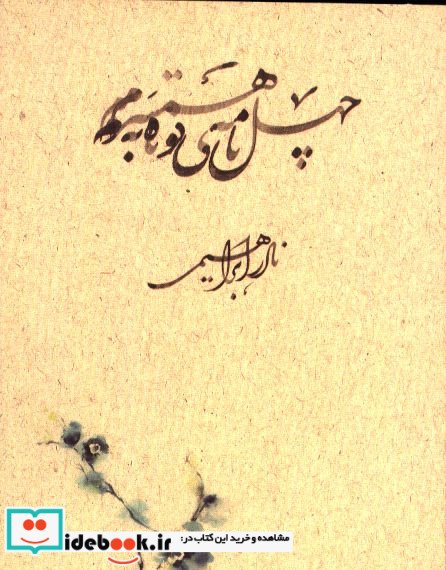 چهل نامه‌ی کوتاه به همسرم
نادر ابراهیمی
مشاهده و خرید این کتاب در:
idebook.ir